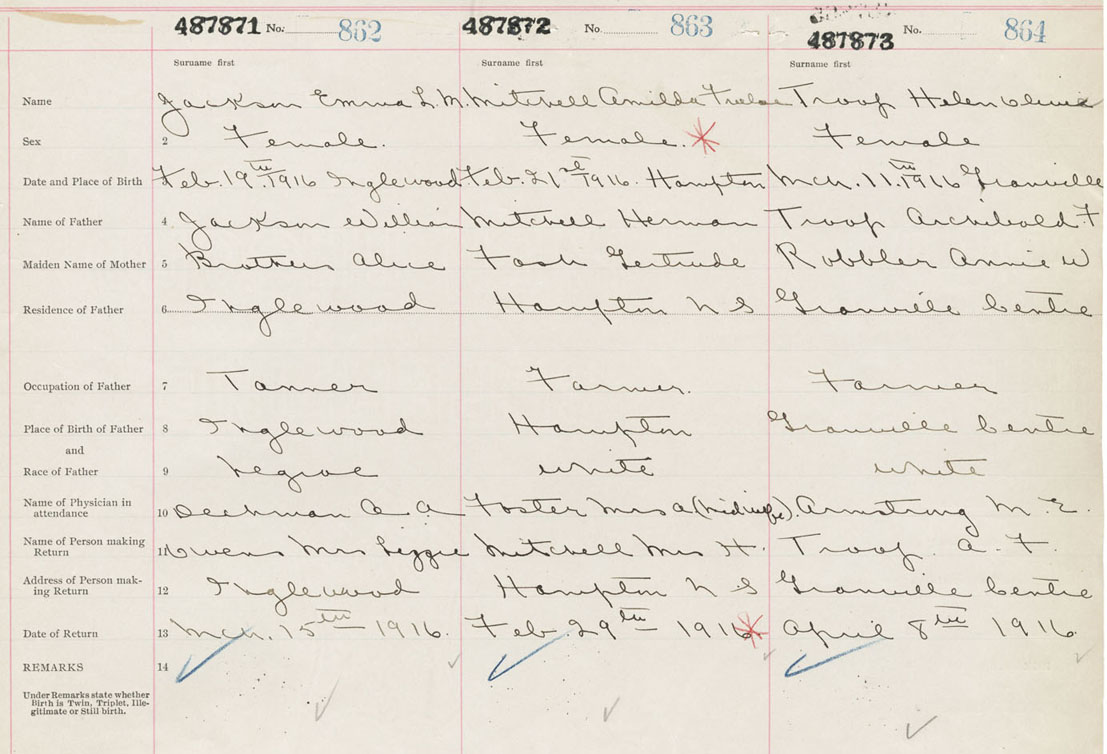 487871 No. 862 487872 No. 863 487873 No. 864
Surname first Surname first Surname first
Name Jackson Emma L. M. Mitchell Amilda Troop Helen Olivia
Sex 2 Female. Female. Female
Date and Place of Birth Feb. 19th 1916 Inglewood Feb. 21st 1916. Hampton Mch. 11th 1916 Granville
Name of Father 4 Jackson William Mitchell Herman Troop Archibald F
Maiden Name of Mother 5 Brothers Alice Fash Gertrude Robbler Annie W
Residence of Father 6 Inglewood Hampton N S Granville Centre
Occupation of Father 7 Tanner Farmer. Farmer
Place of Birth of Father 8 Inglewood Hampton Granville Centre
and
Race of Father 9 Negroe White White
Name of Physician in
attendance 10 Deckman A A Foster Mrs A (Midwife). Armstrong M. E.
Name of Person making
Return 11 Owens Mrs Lizzie Mitchell Mrs H. Troop A. F.
Address of Person mak-
ing Return 12 Inglewood Hampton N S Granville Centre
Date of Return 13 Mch. 15th 1916. Feb. 29th 1916 April 8th 1916
REMARKS 14
Under Remarks state whether
Birth is Twin, Triplet, Ille-
gitimate or Still birth.